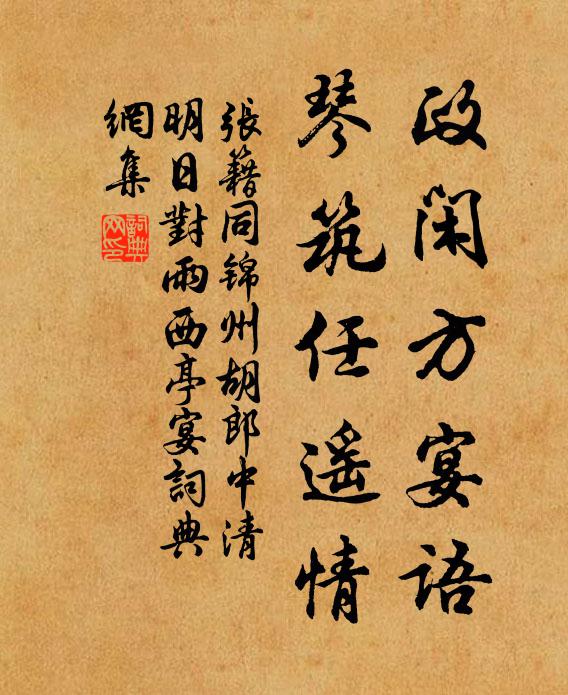 政閑方宴語
琴筑任遥情
張籍同锦州胡郎中清
明日對雨西亭宴詞典
網集
詞典網印